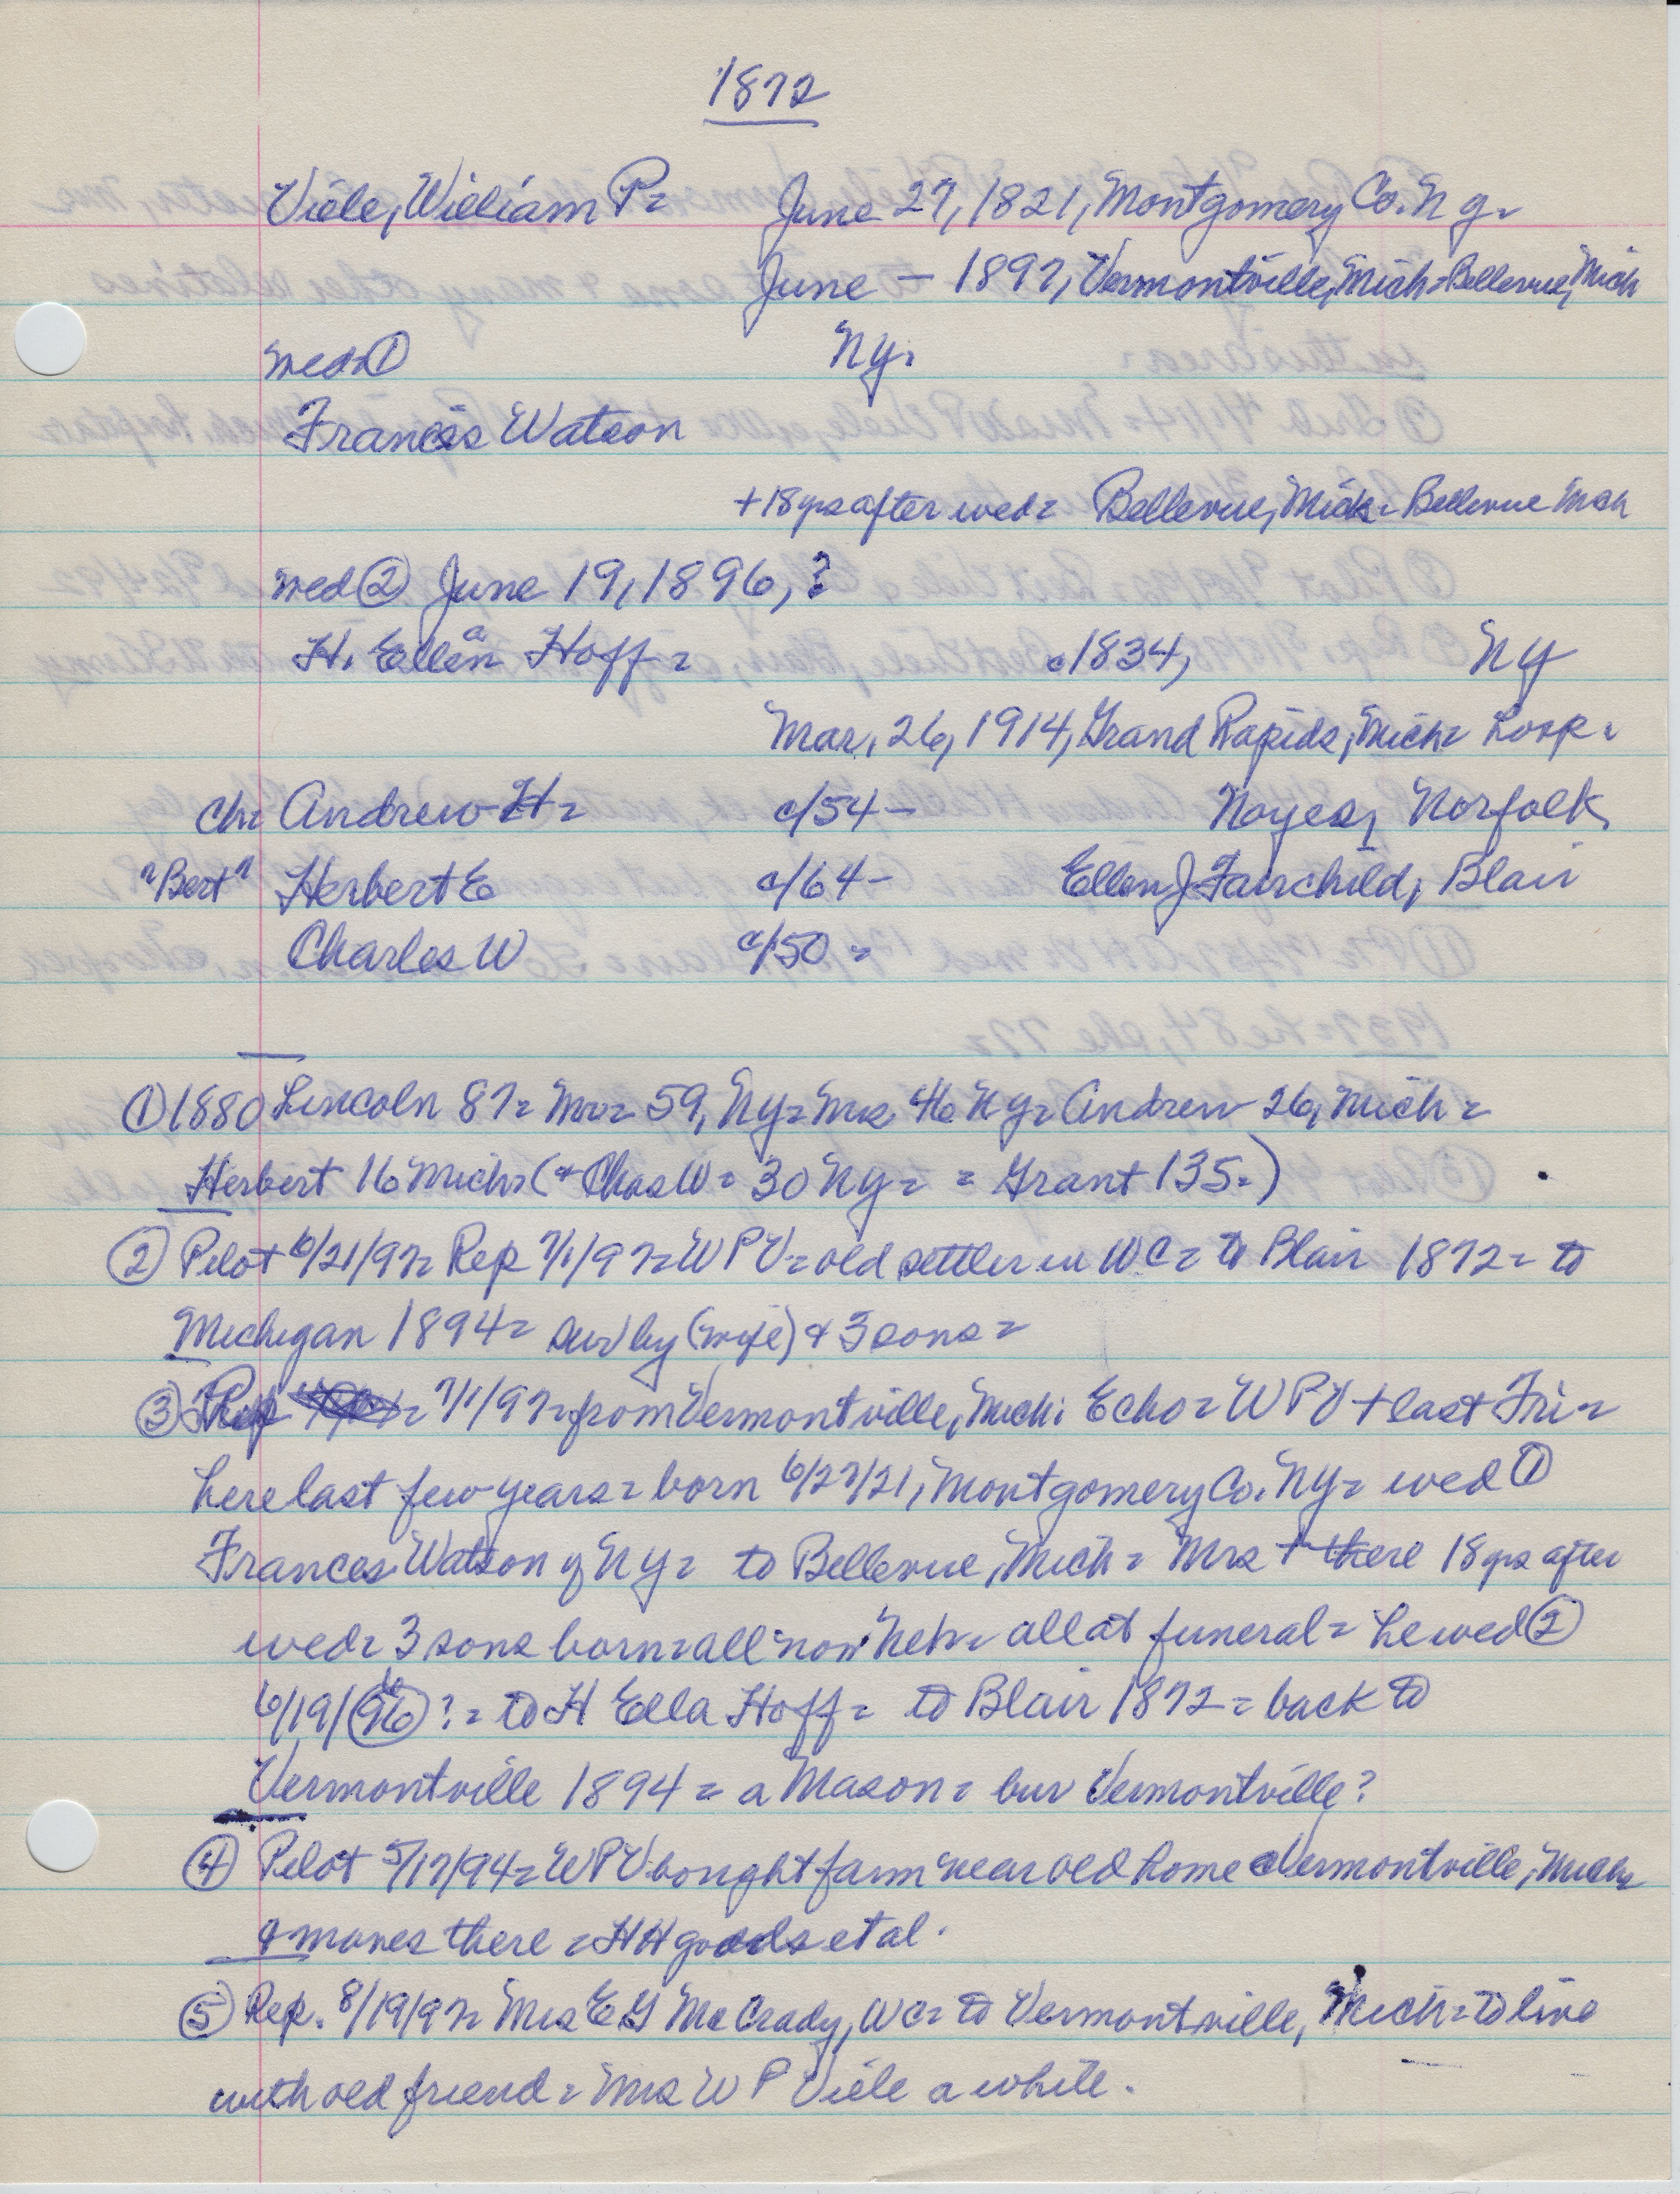 1872
Viele, William P= June 27, 1821, Montgomery Co. N Y.
June – 1897, Vermontville, Mich=Bellevue, Mich
wed=① NY.
Francis Watson
+18 yrs after wed= Bellevue, Mich= Bellevue Mich
wed② June 19, 1896, ?
H. Ellen a Hoff= c1834, NY
Mar. 26, 1914, Grand Rapids, Mich= hosp.
Ch= Andrew H= c/54– Noyes, Norfolk,
"Bert" Herbert E c/64– Ellen J Fairchild, Blair
Charles W c/50=
① 1880 Lincoln 87= Mr= 59, NY= Mrs 46 NY= Andrew 26, Mich=
Herbert 16 Mich= (+ Chas W= 30 NY= = Grant 135=)
② Pilot 6/21/97= Rep 7/1/97= W P V= old settler in WC= to Blair 1872= to
Michigan 1894= surv by (wife) & 3 sons=
③ Rep = 7/1/97= from Vermontville, Mich. Echo= W P V + last Fri=
here last few years= born 6/27/21, Montgomery Co. NY= wed ①
Frances Watson of NY= to Bellevue, Mich= Mrs + there 18 yrs after
wed= 3 sons born= all now Neb= all at funeral= he wed ②
6/19/96 ?= to H Ella Hoff= to Blair 1872= back to
Vermontville 1894= a Mason= bur Vermontville?
④ Pilot 5/17/94= W P V bought farm near old home Vermontville, Mich=
& moves there = HH goods et al.
⑤ Rep. 8/19/97= Mrs E G McCrady, WC= to Vermontville, Mich= to live
with old friend= Mrs W P Viele a while.